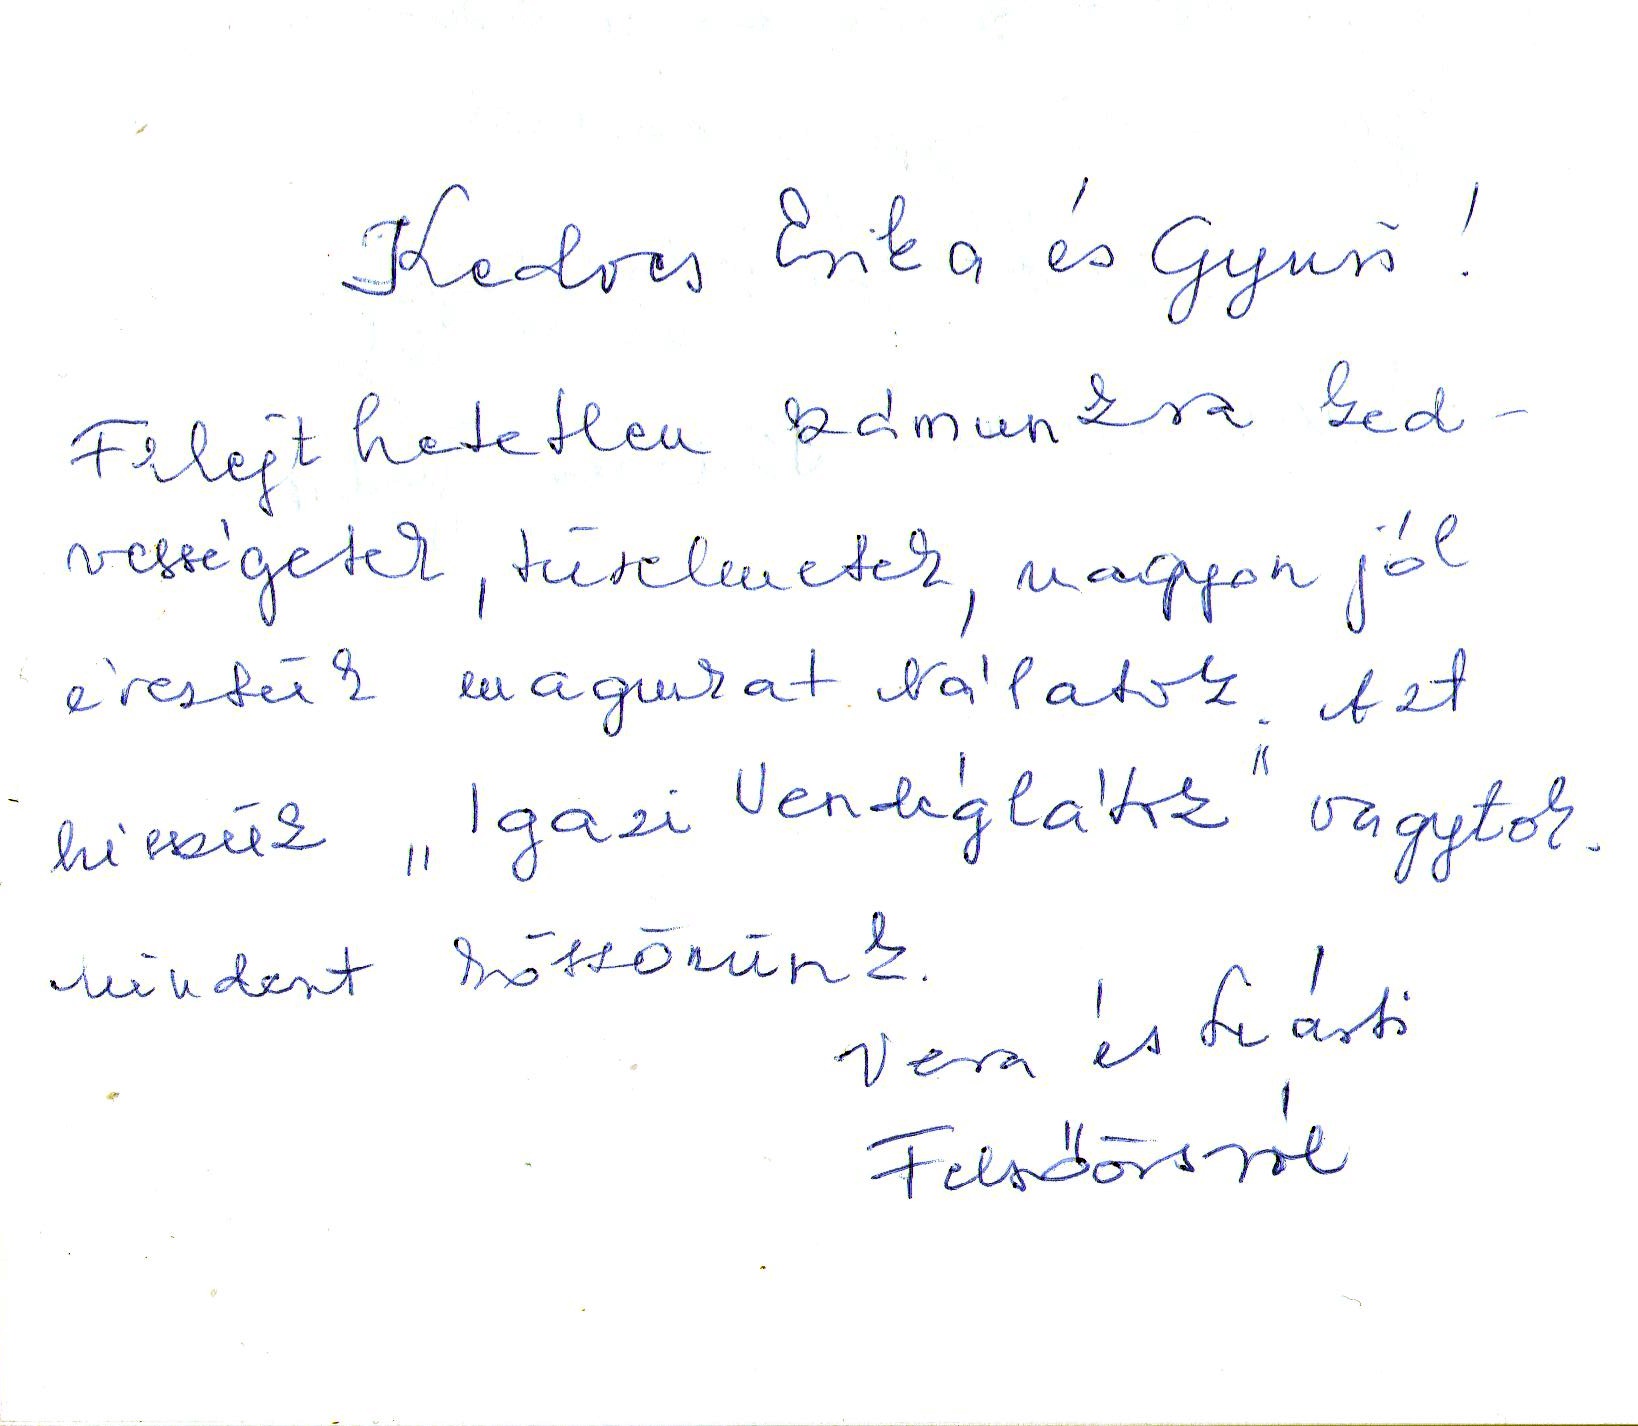 Kedves Erika és Gyuri!
Felejthetetlen számunkra ked-
vességetek, türelmetek, nagyon jól
éreztük magunkat Nálatok. Azt
hisszük „Igazi Vendéglátók" vagytok.
Mindent köszönünk.
Vera és
Felsőörsről